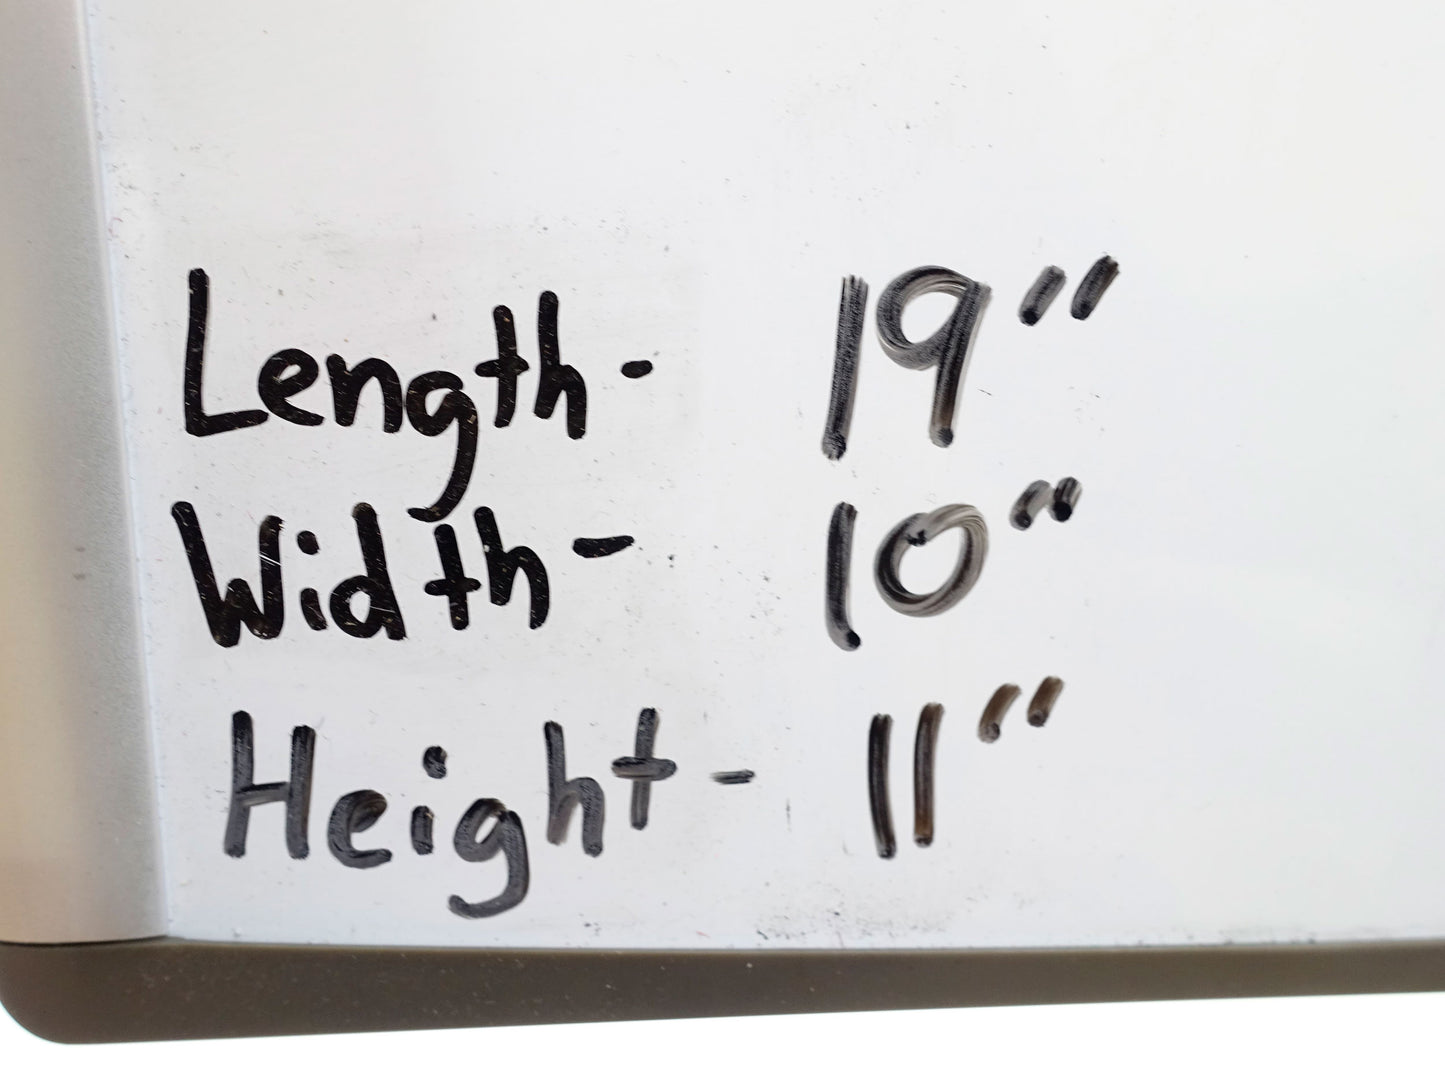 Length- 19"
Width- 10"
Height- 11"